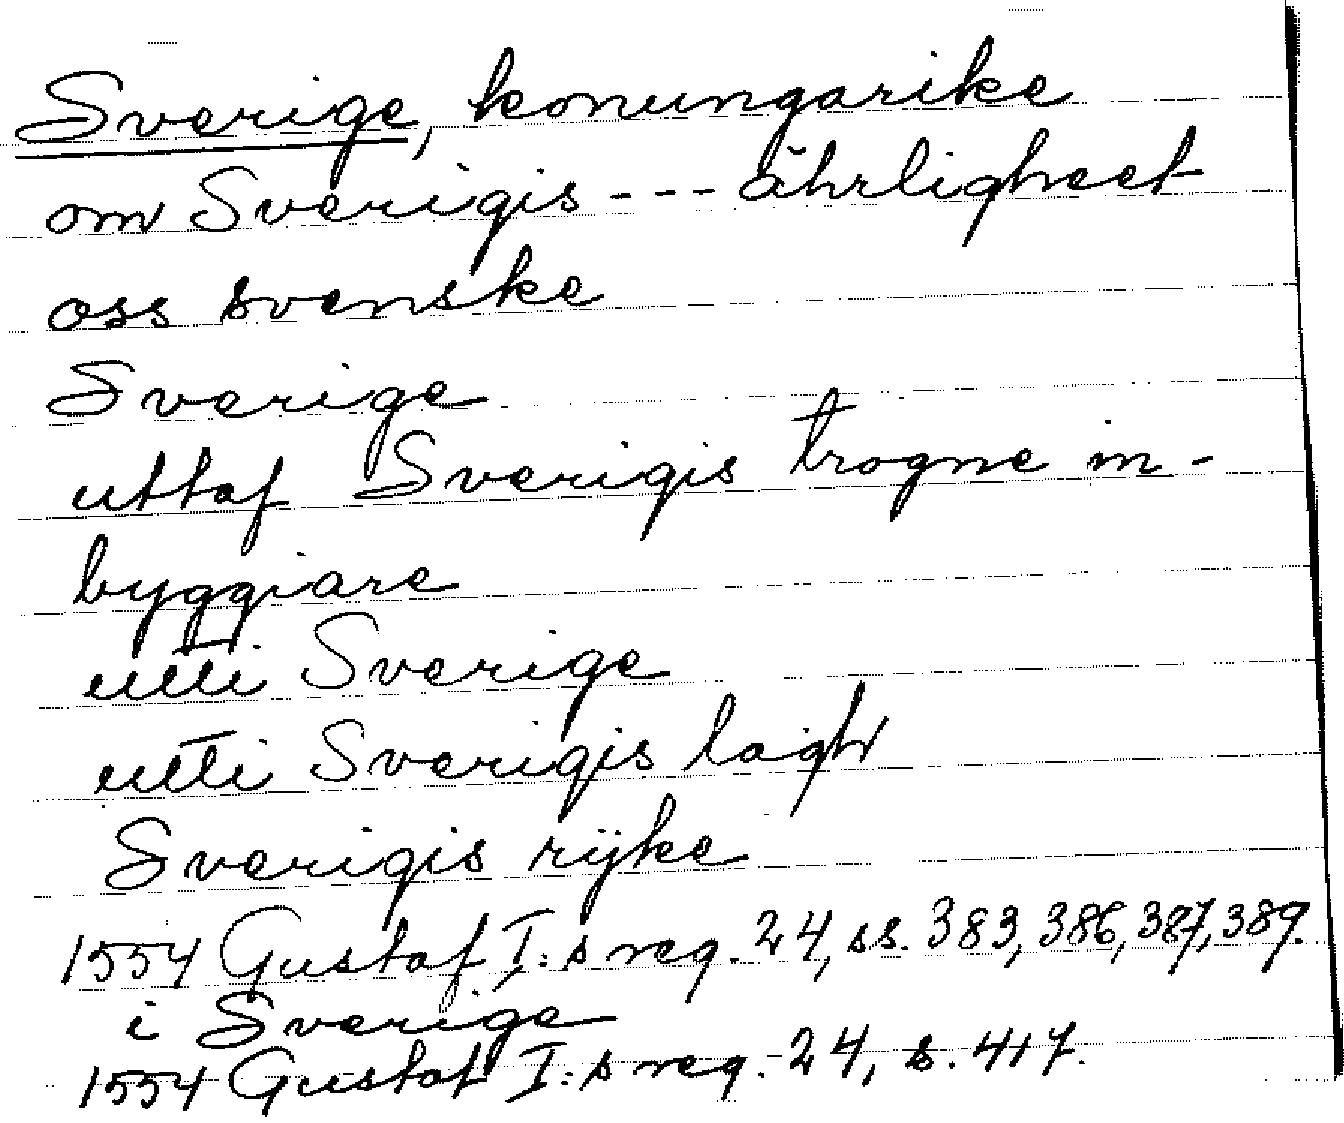 Sverige, konungarike
om Sverigis --- ährligheet
oss svenske
Sverige
uttaf Sverigis trogne in-
byggiare
utti Sverige
utti Sverigis lagh
Sverigis rijke
1554 Gustaf I:s reg. 24, ss. 383, 386, 387, 389.
i Sverige
1554 Gustaf I:s reg. 24, s. 417.